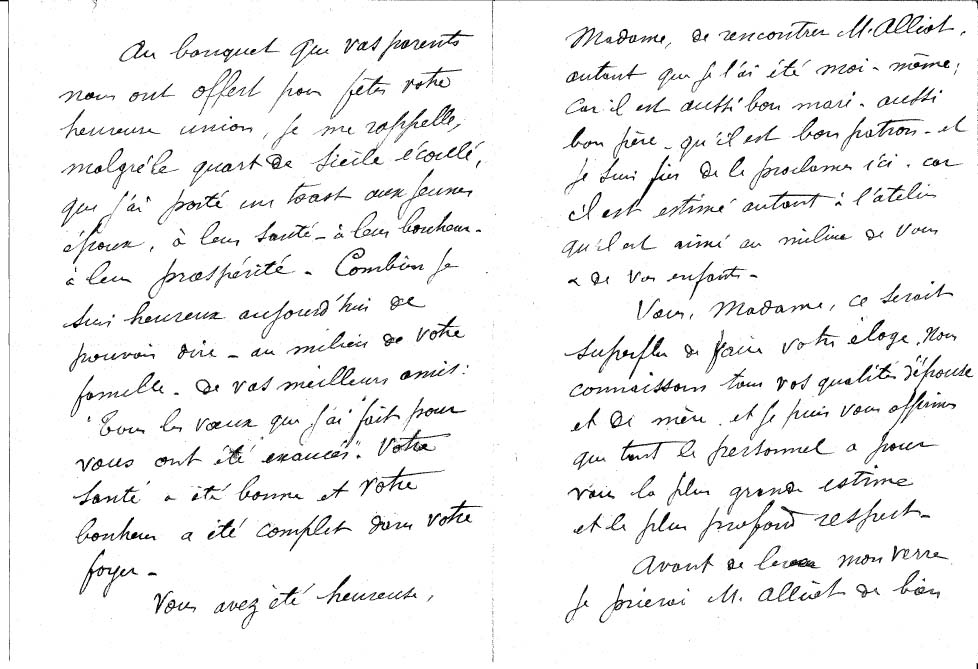 Au banquet que vos parents
nous ont offert pour fêter votre
heureuse union, je me rappelle,
malgré le quart de siècle écoulé,
que j'ai porté un toast aux jeunes
époux, à leur santé - à leur bonheur -
à leur prospérité - Combien je
suis heureux aujourd'hui de
pouvoir dire - au milieu de votre
famille - de vos meilleurs amis :
"Tous les vœux que j'ai fait pour
vous ont été exaucés". Votre
santé a été bonne et votre
bonheur a été complet dans votre
foyer -
Vous avez été heureuse,
Madame, de rencontrer M. Alliot,
autant que je l'ai été moi-même;
car il est aussi bon mari - aussi
bon père - qu'il est bon patron - et
je suis fier de le proclamer ici - car
il est estimé autant à l'atelier
qu'il est aimé au milieu de vous
& de vos enfants -
Vous, Madame, ce serait
superflu de faire votre éloge. Nous
connaissons tous vos qualités d'épouse
et de mère. et je puis vous affirmer
que tout le personnel a pour
vous la plus grande estime
et le plus profond respect -
Avant de lever mon verre
je prierai M. Alliot de bien